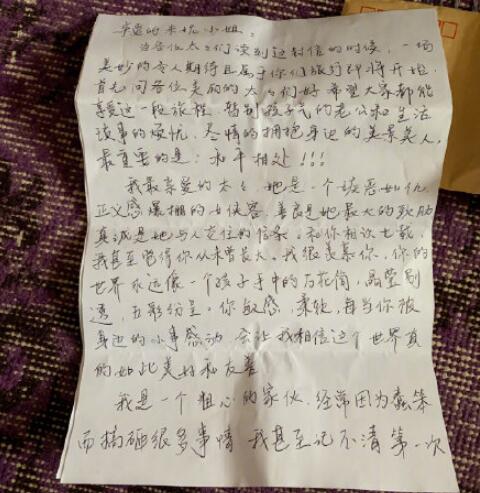 亲爱的朱忱小姐：
当各位太太们读到这封信的时候，一场
美妙的令人期待且属于你们旅行即将开始，
首先问各位美丽的太太们好 希望大家都能
享受这一段旅程，暂别孩子气的老公和生活
琐事的烦忧，尽情的拥抱身边的美景美人，
最重要的是：和平相处！！！
我最亲爱的太太，她是一个嫉恶如仇
正义感爆棚的女侠客，善良是她最大的软肋
真诚是她与人交往的信条，和你相识七载，
我甚至觉得你从未曾长大，我很羡慕你，你的
世界永远像一个孩子手中的万花筒，晶莹剔
透，五彩纷呈。你敏感，柔软，每当你被
身边的小事感动，会让我相信这个世界真
的如此美好和友善
我是一个粗心的家伙，经常因为蠢笨
而搞砸很多事情 我甚至记不清第一次